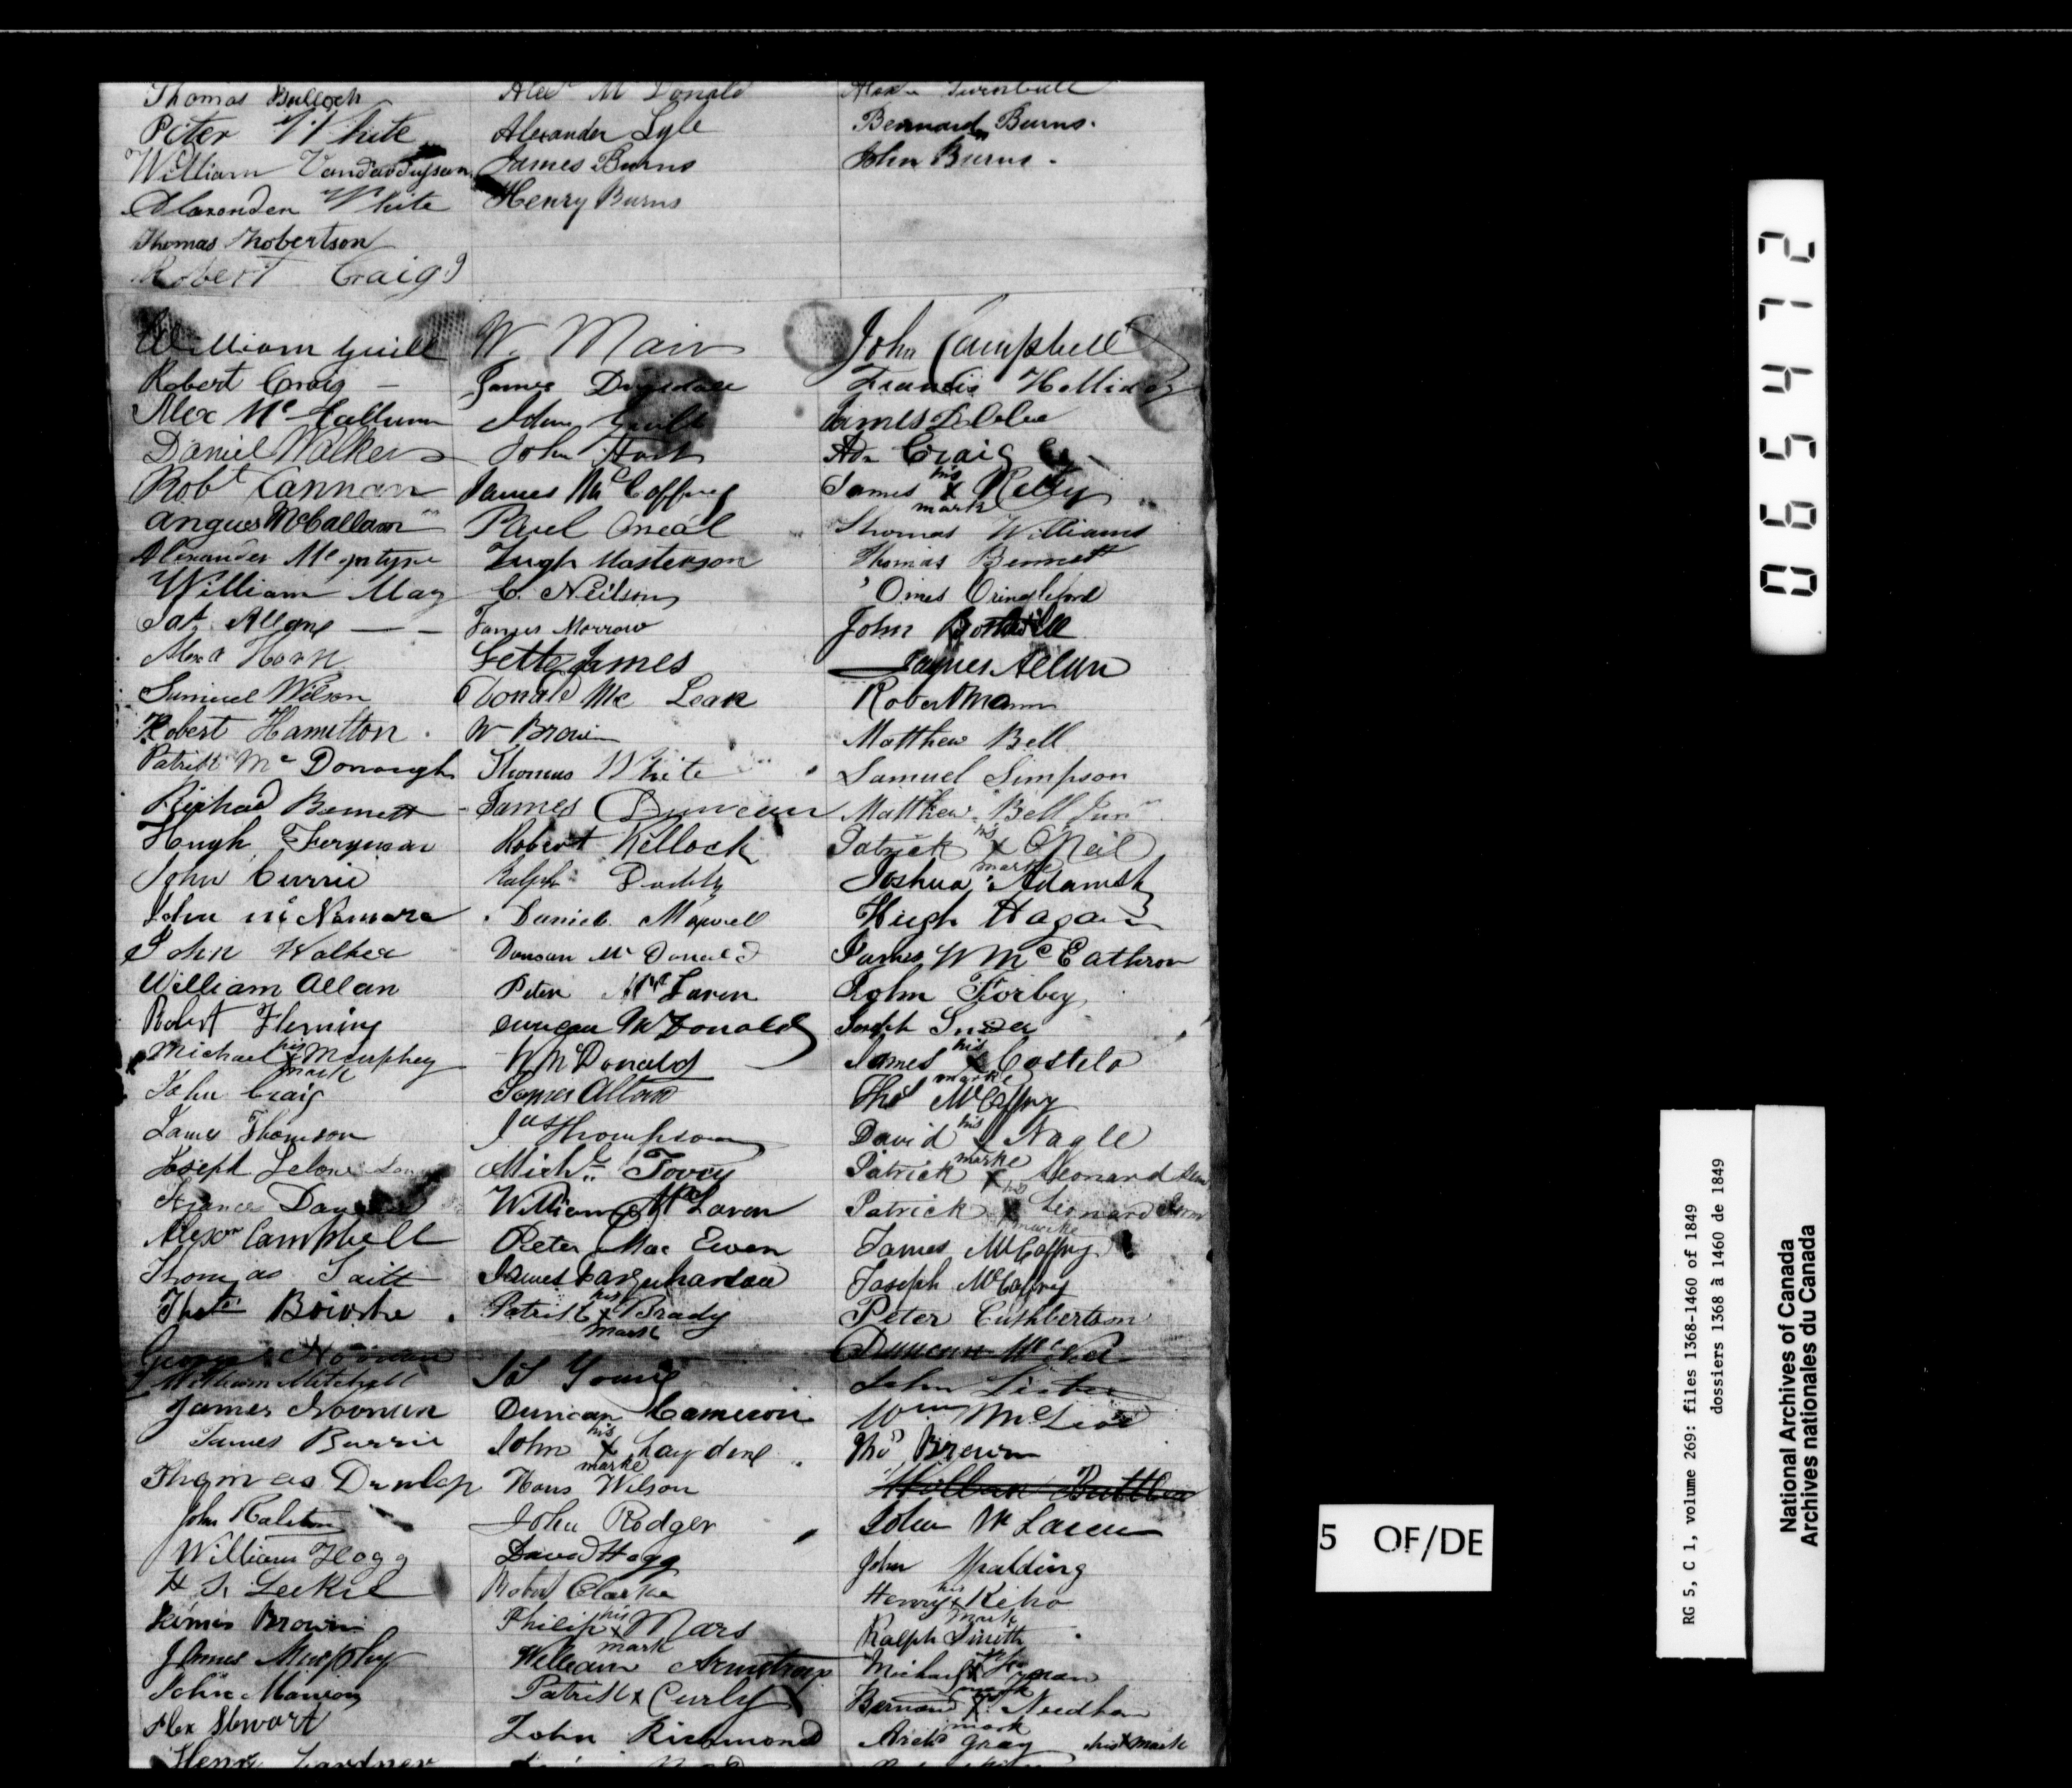 Thomas Bulloch
Peter White
William Vandadusan
Alaxonden White
Thomas Robertson
Robert Craig
William Guill
Robert Craig
Alex Mc Callum
Daniel Walker
Robt Cannan
Angus McCallam
Alexander Mc
William May
Pat Allane
Alexr Horn
Samuel Wilson
Robert Hamilton
Patrick Mc Donough
Richad Bennett
Hugh Ferguson
John Currie
John Mc Namara
John Walker
William Allan
Robert Fleming
Michael his x mark Murphey
John Craig
James Thomson
Joseph
Alexr Campbell
Thomas Tait
George
William Mitchell
James Noonan
James Burrie
Thomas Dunlop
John Ralston
William Hogg
H. S. Leckie
James Brown
James Murphy
John
Alex Stewart
Henry Gardner
Alexr Mc Donald
Alexander Lyle
James Burns
Henry Burns
W. Mair
James
Adam Guill
John Hart
James McCaffrey
Paul Oneal
Hugh Masterson
C. Neilson
James Morrow
James
Donald Mc Lean
W Brown
Thomas White
James Duncan
Robert Kellock
Ralph
Daniel Maxwell
Duncan Mc Donald
Peter McLaren
Duncan McDonald
W McDonald
James
Jas Thompson
Michl Tovey
William McLaren
Peter Mac Ewen
James Farquharson
Patrick his x mark Brady
Young
Duncan Cameron
John his x marke Laydene
Hans Wilson
John Rodger
David Hogg
Robert Clarke
Philip his x mark Mars
William Armstrong
Patrick x Curly
John Richmond
Alexr Turnbull
Bernard Burns.
John Burns.
John Campbell
Francis Holliday
James
Adn Craig
James his x mark Kelly
Thomas Williams
Thomas Bennett
John
James Allan
Robert Mann
Matthew Bell
Samuel Simpson
Matthew Bell Junr
Patrick his x marke ONeil
Joshua Adams
Hugh Hagan
James W McEathron
John Forbey
Joseph
James his x marke Costelo
Thos McCaffry
David his x marke Nagle
Patrick x Leonard
Patrick his x marke Leonard
James McCaffry
Joseph McCaffrey
Peter Cuthbertson
Duncan
John Lister
Wm McLeod
Thos Brown
Butler
John McLaren
John Spalding
Henry his x mark Keho
Ralph Smith
Michael x mark
Bernard x mark Needham
Archd Gray his x mark
065472
5 OF/DE
RG 5, C 1, volume 269: files 1368-1460 of 1849
dossiers 1368 à 1460 de 1849
National Archives of Canada
Archives nationales du Canada